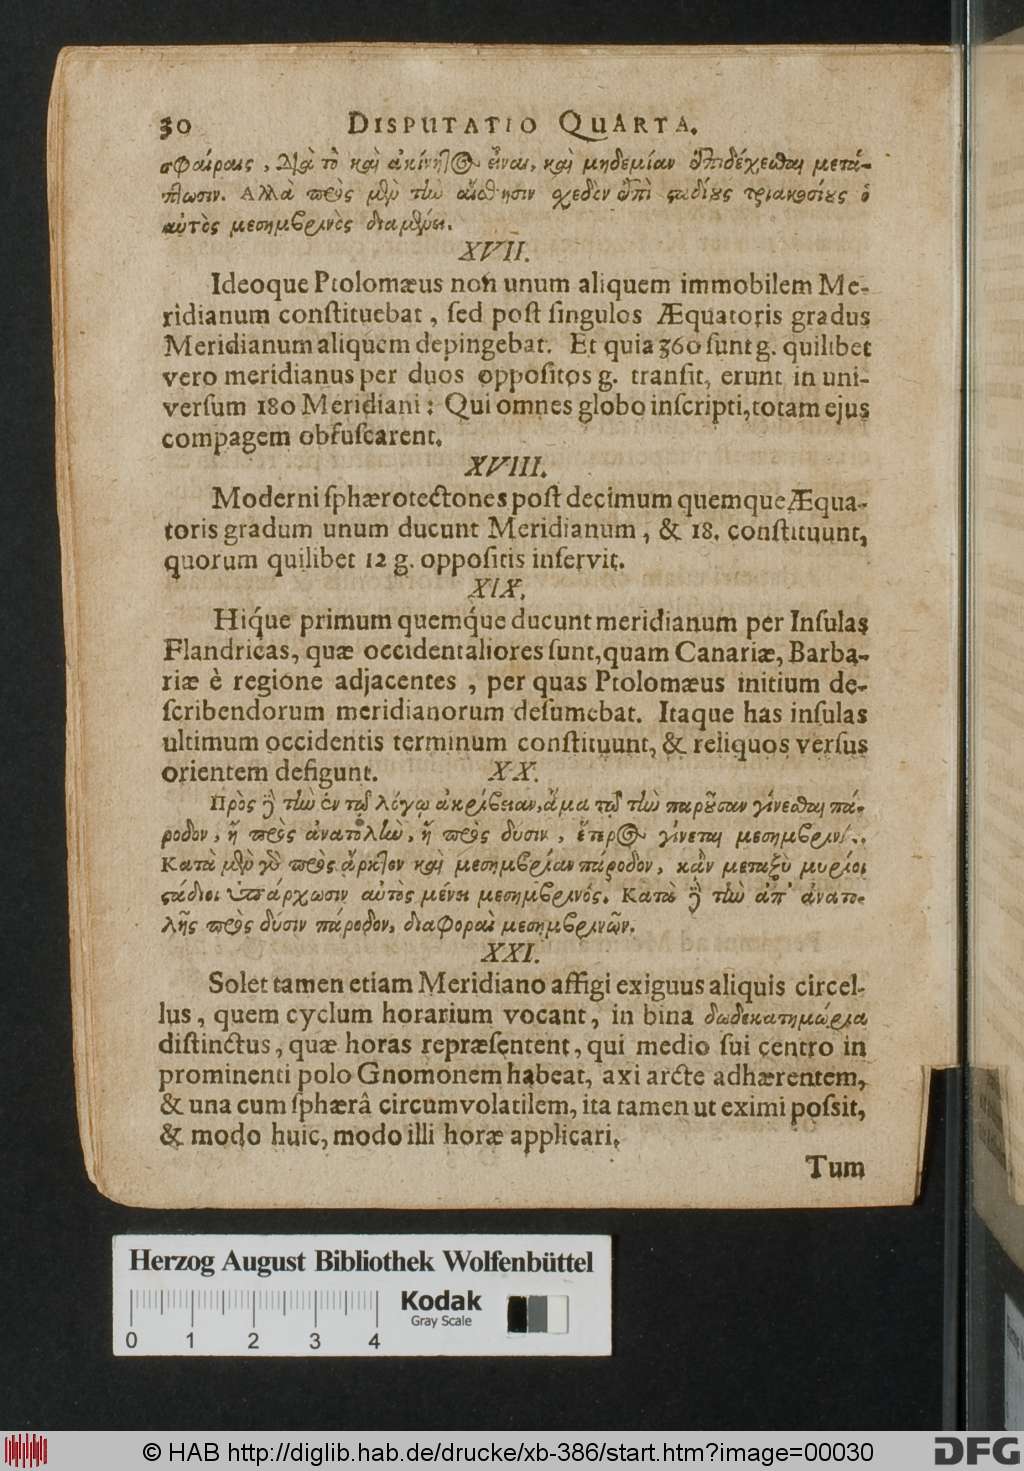 30 DISPUTATIO QUARTA.
σφαίραις, Διὰ τὸ καὶ ἀκίνητος εἶναι, καὶ μηδεμίαν ἐπιδέχεσθαι μετά-
πτωσιν. Αλλὰ πρὸς μὲν τὴν αἴσθησιν σχεδὸν ἐπὶ σταδίους τριακοσίους ὁ
αὐτὸς μεσημβρινὸς διαμένει.
XVII.
Ideoque Ptolomæus non unum aliquem immobilem Me-
ridianum conſtituebat, ſed poſt ſingulos Æquatoris gradus
Meridianum aliquem depingebat. Et quia 360 ſunt g. quilibet
vero meridianus per duos oppoſitos g. tranſit, erunt in uni-
verſum 180 Meridiani: Qui omnes globo inſcripti, totam ejus
compagem obfuſcarent.
XVIII.
Moderni ſphærotectones poſt decimum quemque Æqua-
toris gradum unum ducunt Meridianum, & 18. conſtituunt,
quorum quilibet 12 g. oppoſitis inſervit.
XIX.
Hiq́ue primum quemq́ue ducunt meridianum per Inſulas
Flandricas, quæ occidentaliores ſunt, quam Canariæ, Barba-
riæ è regione adjacentes, per quas Ptolomæus initium de-
ſcribendorum meridianorum deſumebat. Itaque has inſulas
ultimum occidentis terminum conſtituunt, & reliquos verſus
orientem defigunt. XX.
Πρὸς δὲ τὴν ἐν τῷ λόγῳ ἀκρίβειαν, ἅμα τῷ τὴν παροῦσαν γίνεσθαι πά-
ροδον, ἢ πρὸς ἀνατολὴν, ἢ πρὸς δύσιν, ἕτερος γίνεται
Κατὰ μὲν γὸ πρὸς ἄρκτον καὶ μεσημβρίαν πάροδον, κἂν μεταξὺ μυρίοι
στάδιοι ὑπάρχωσιν αὐτὸς μένει μεσημβρινός. Κατὰ δὲ τὴν ἀπ' ἀνατο-
λῆς πρὸς δύσιν πάροδον, διαφοραὶ μεσημβρινῶν.
XXI.
Solet tamen etiam Meridiano affigi exiguus aliquis circel-
lus, quem cyclum horarium vocant, in bina δωδεκατημώρια
diſtinctus, quæ horas repræſentent, qui medio ſui centro in
prominenti polo Gnomonem habeat, axi arcte adhærentem,
& una cum ſphærâ circumvolatilem, ita tamen ut eximi poſsit,
& modo huic, modo illi horæ applicari.
Tum
Herzog August Bibliothek Wolfenbüttel
Kodak
Gray Scale
0 1 2 3 4
© HAB http://diglib.hab.de/drucke/xb-386/start.htm?image=00030
DFG